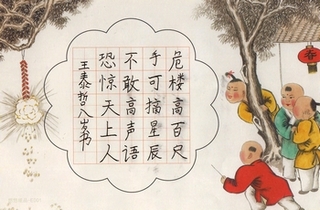 危楼高百尺
手可摘星辰
不敢高声语
恐惊天上人
王泰哲八岁书
春